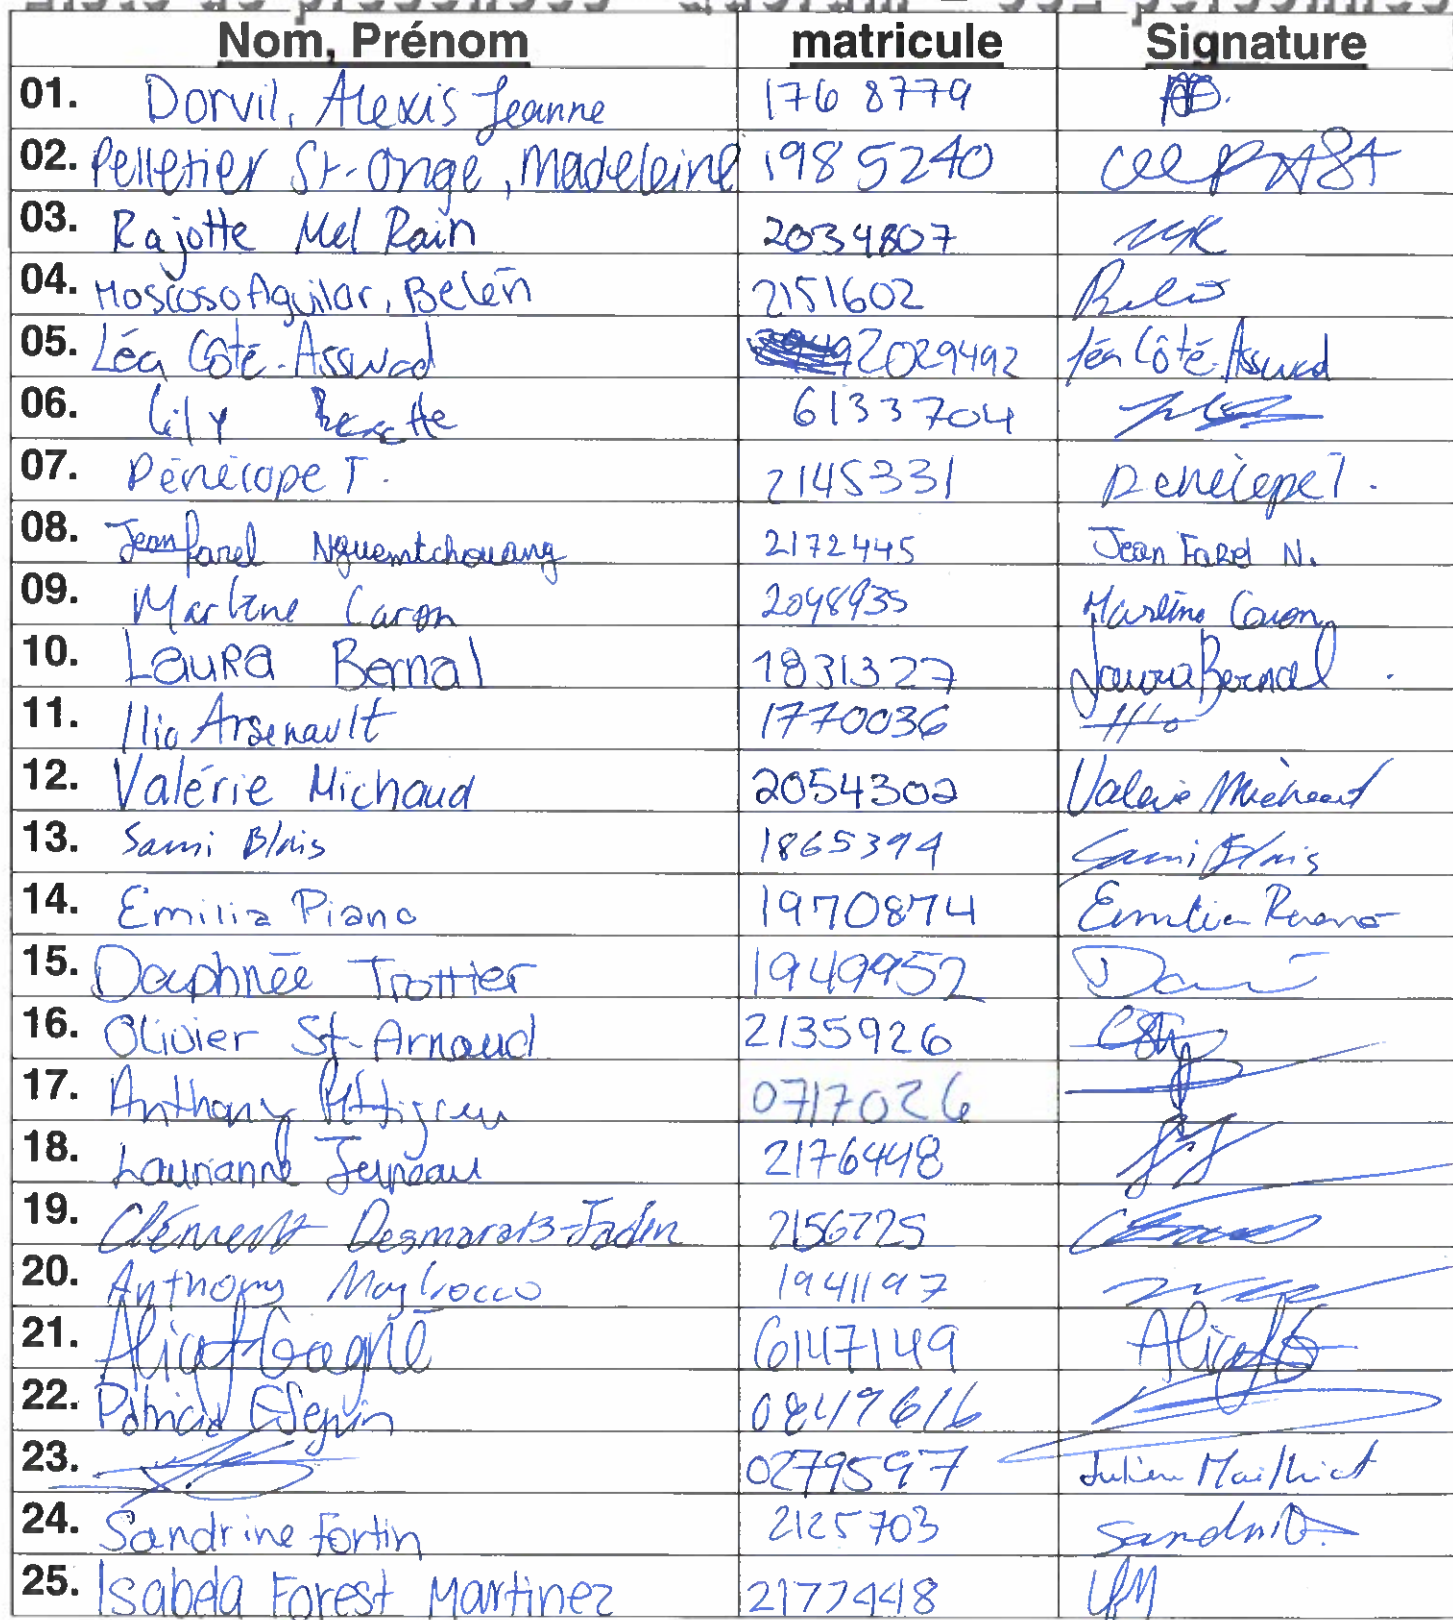 Liste de présences - Quorum = 552 personnes
Nom, Prénom matricule Signature
01. Dorvil, Alexis Jeanne 1768779
02. Pelletier St-Onge, Madeleine 1985240
03. Rajotte Mel Rain 2034807 MR
04. Moscoso Aguilar, Belén 2151602 Belén
05. Léa Côté-Asswad 2029492 Léa Côté-Asswad
06. Lily 6133704
07. Pénélope T. 2145331 Pénélope T.
08. Jean farel Nguemtchouang 2172445 Jean Farel N.
09. Marlène Caron 2098935 Marlène Caron
10. Laura Bernal 1831327 Laura Bernal
11. Ilia Arsenault 1770036
12. Valérie Michaud 2054302 Valérie Michaud
13. Sami Blais 1865394 Sami Blais
14. Emilia Piano 1970874 Emilia Piano
15. Daphnée Trottier 1949952
16. Olivier St-Arnaud 2135926
17. Anthony Pettigrew 0717026
18. Laurianne Juneau 2176448
19. Clément Desmarais-Jadin 2156725
20. Anthony Magliocco 1941197
21. Gagné 6147149
22. Patricia Séguin 08479616
23. 02795597 Julien Mailhiot
24. Sandrine Fortin 2125703
25. Isabela Forest Martinez 2177448 IFM